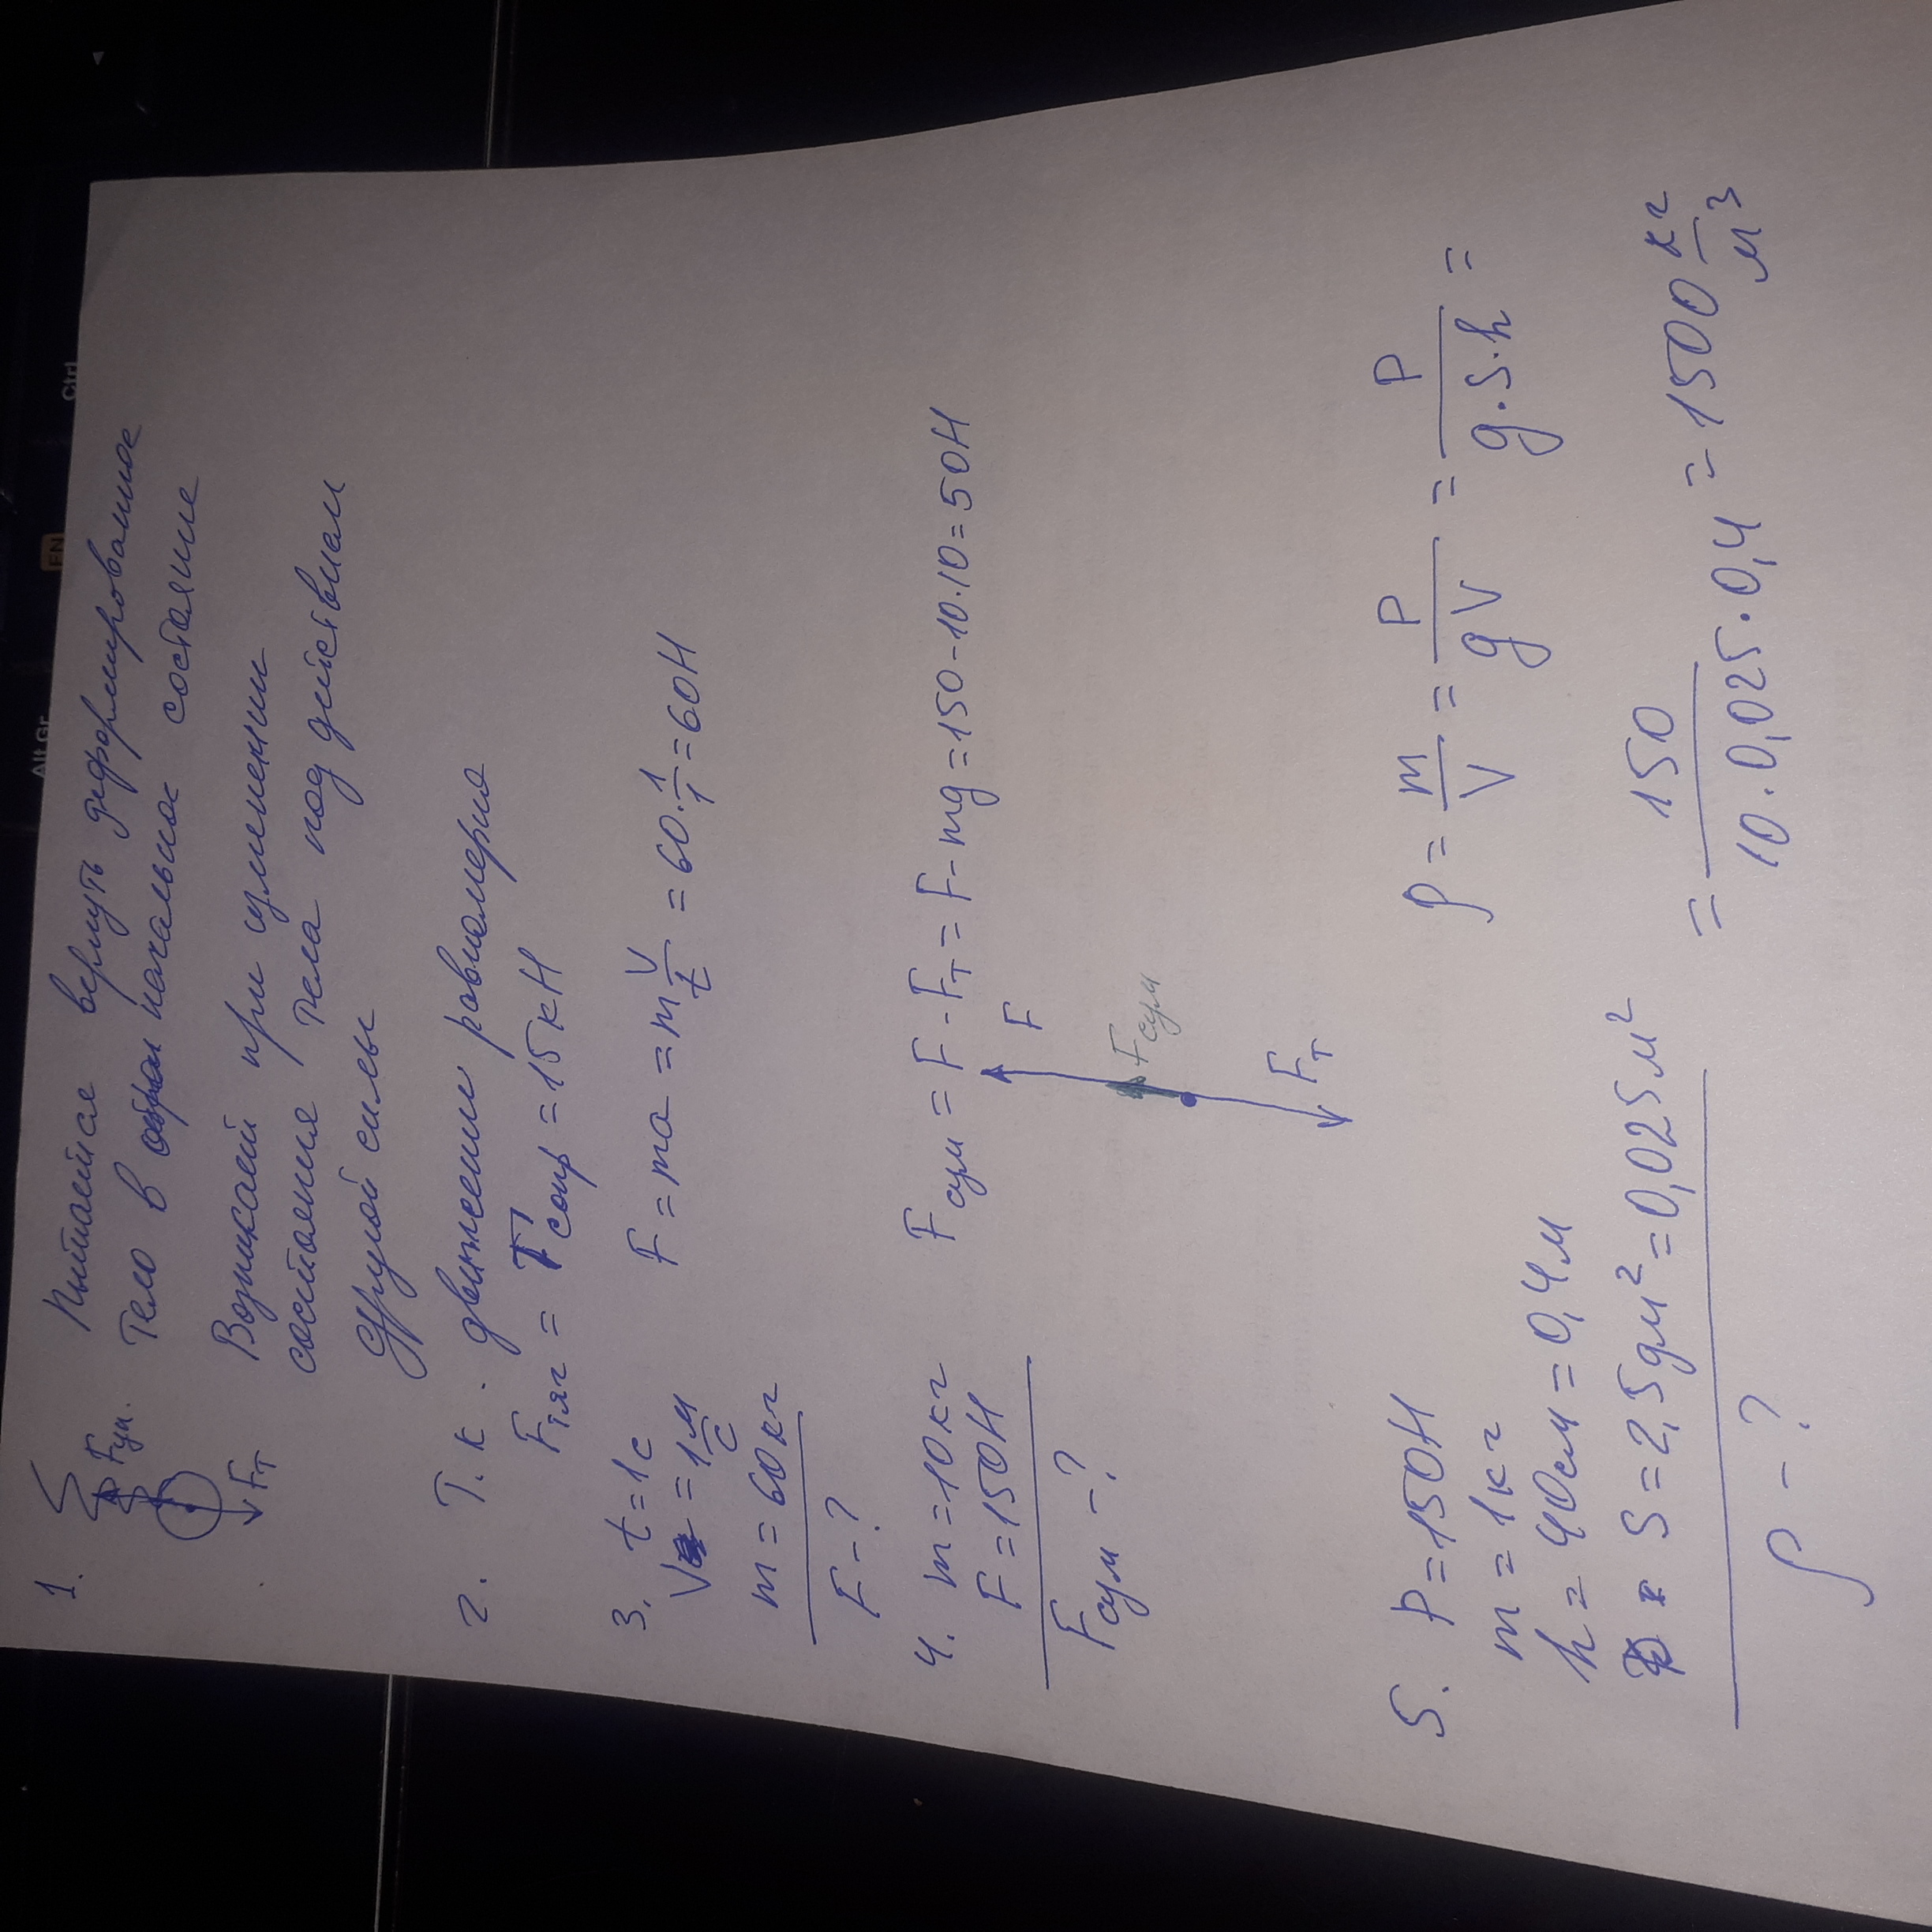 Ctrl
EN
Alt Gr
1. Fуп. Fт
Пытается вернуть деформированное
тело в начальное состояние
Возникает при изменении
состояния тела под действием
другой силы
2. Т.к. движении равномерно
Fтяг = Fсопр = 15кН
3. t = 1с
V = 1 м/с
m = 60кг
F - ?
F = ma = m V/t = 60 · 1/1 = 60Н
4. m = 10кг
F = 150Н
Fсум - ?
Fсум = F - Fт = F - mg = 150 - 10·10 = 50Н
F
Fсум
Fт
5. P = 150Н
m = 1кг
h = 40см = 0,4м
S = 2,5дм² = 0,025м²
ρ - ?
ρ = m/V = P/gV = P/g·S·h =
= 150/10·0,025·0,4 = 1500 кг/м³